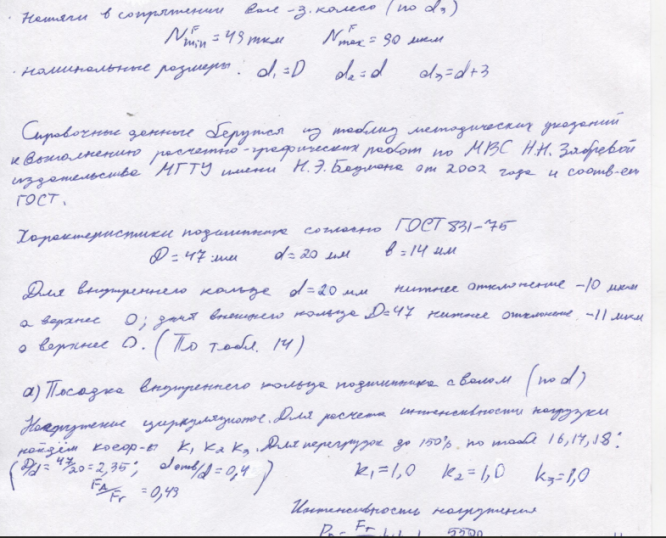 Натяги в сопряжении вал - з. колесо (по d₃)
N^F_min = 43 мкм N^F_max = 90 мкм
· номинальные размеры: d₁ = D d₂ = d d₃ = d+3
Справочные данные берутся из таблиц методических указаний
к выполнению расчетно-графических работ по МВС Н.Н. Зябревой
издательства МГТУ имени Н.Э. Баумана от 2002 года и соотв-ен
ГОСТ.
Характеристики подшипника согласно ГОСТ 831-75
D = 47 мм d = 20 мм b = 14 мм
Для внутреннего кольца d = 20 мм нижнее отклонение -10 мкм
а верхнее 0; для внешнего кольца D = 47 нижнее отклонение -11 мкм
а верхнее 0. (По табл. 14)
а) Посадка внутреннего кольца подшипника с валом (по d)
Нагружение циркуляционное. Для расчета интенсивности нагрузки
найдём коэф-ы k₁ k₂ k₃. Для перегрузок до 150% по табл 16, 17, 18:
(D/d = 47/20 = 2,35; d отв/d = 0,4 k₁ = 1,0 k₂ = 1,0 k₃ = 1,0
F_A/F_r = 0,43)
Интенсивность нагружения